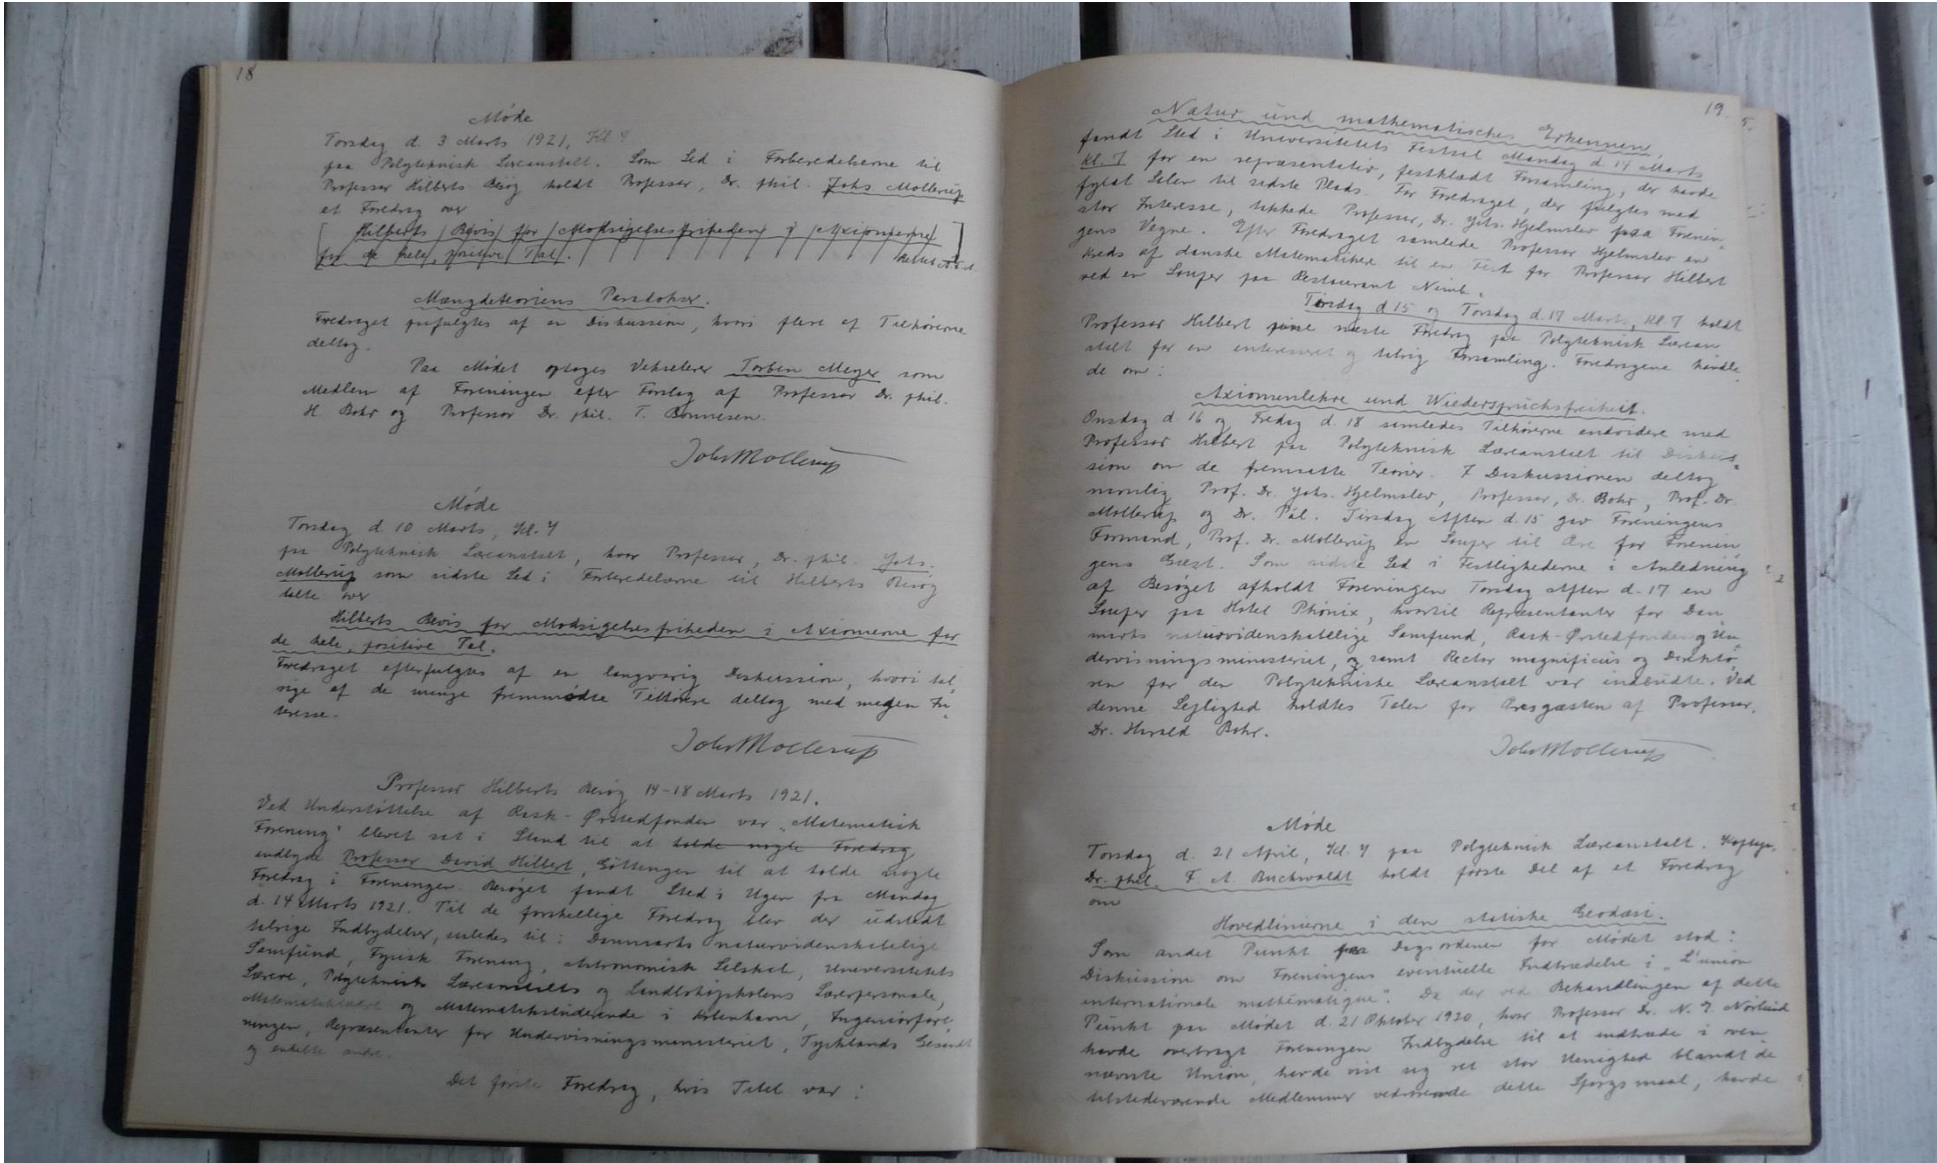 18
Møde
Torsdag d. 3 Marts 1921, Kl 7
paa Polyteknisk Læreanstalt. Som Led i Forberedelserne til
Professor Hilberts Besøg holdt Professor, Dr. phil. Johs Mollerup
et Foredrag over
Hilberts Bevis for Modsigelsesfriheden i Axiomerne
for de hele, positive Tal.
Mængdeteoriens Paradokser.
Foredraget paafulgtes af en Diskussion, hvori flere af Tilhørerne
deltog.
Paa Mødet optoges Vekselerer Torben Meyer som
Medlem af Foreningen efter Forslag af Professor Dr. phil.
H. Bohr og Professor Dr. phil. T. Bonnesen.
Johs Mollerup
Møde
Torsdag d. 10 Marts, Kl. 7
paa Polyteknisk Læreanstalt, hvor Professor, Dr. phil. Johs.
Mollerup som sidste Led i Forberedelserne til Hilberts Besøg
talte over
Hilberts Bevis for Modsigelsesfriheden i Axiomerne for
de hele, positive Tal.
Foredraget efterfulgtes af en langvarig Diskussion, hvori tal-
rige af de mange fremmødte Tilhørere deltog med megen In-
teresse.
Johs Mollerup
Professor Hilberts Besøg 14-18 Marts 1921.
Ved Understøttelse af Rask-Ørstedfonden var „Matematisk
Forening" blevet sat i Stand til at holde nogle Foredrag
indbyde Professor David Hilbert, Göttingen til at holde nogle
Foredrag i Foreningen. Besøget fandt Sted i Ugen fra Mandag
d. 14 Marts 1921. Til de forskellige Foredrag blev der udstedt
talrige Indbydelser, saaledes til: Danmarks naturvidenskabelige
Samfund, Fysisk Forening, Astronomisk Selskab, Universitetets
Lærere, Polyteknisk Læreanstalts og Landbohøjskolens Lærerpersonale,
Matematiklærere og Matematikstuderende i København, Ingeniørfore-
ningen, Repræsentanter for Undervisningsministeriet, Tysklands Gesandt
og enkelte andre.
Det første Foredrag, hvis Titel var:
19.
Natur und mathematisches Erkennen,
fandt Sted i Universitetets Festsal Mandag d. 14 Marts
Kl. 7 for en repræsentativ, festklædt Forsamling, der havde
fyldt Salen til sidste Plads. For Foredraget, der fulgtes med
stor Interesse, takkede Professor, Dr. Johs. Hjelmslev paa Forenin-
gens Vegne. Efter Foredraget samlede Professor Hjelmslev en
Kreds af danske Matematikere til en Fest for Professor Hilbert
ved en Souper paa Restaurant Nimb.
Tirsdag d 15 og Torsdag d. 17 Marts, Kl. 7 holdt
Professor Hilbert sine næste Foredrag paa Polyteknisk Lærean-
stalt for en interesseret og talrig Forsamling. Foredragene handle-
de om:
Axiomenlehre und Wiederspruchsfreiheit.
Onsdag d. 16 og Fredag d. 18 samledes Tilhørerne endvidere med
Professor Hilbert paa Polyteknisk Læreanstalt til Diskus-
sion om de fremsatte Teorier. I Diskussionen deltog
navnlig Prof. Dr. Johs. Hjelmslev, Professor, Dr. Bohr, Prof. Dr.
Mollerup og Dr. Pál. Tirsdag Aften d. 15 gav Foreningens
Formand, Prof. Dr. Mollerup en Souper til Ære for Forenin-
gens Gæst. Som sidste Led i Festlighederne i Anledning
af Besøget afholdt Foreningen Torsdag Aften d. 17 en
Souper paa Hotel Phönix, hvortil Repræsentanter for Dan-
marks naturvidenskabelige Samfund, Rask-Ørstedfonden og Un-
dervisningsministeriet, og samt Rector magnificus og Direktø-
ren for den Polytekniske Læreanstalt var indbudte. Ved
denne Lejlighed holdtes Talen for Æresgæsten af Professor,
Dr. Harald Bohr.
Johs Mollerup
Møde
Torsdag d. 21 April, Kl. 7 paa Polyteknisk Læreanstalt. Kaptajn,
Dr. phil. F. A. Buchwaldt holdt første Del af et Foredrag
om
Hovedlinierne i den statiske Geodæsi.
Som andet Punkt paa Dagsordenen for Mødet stod:
Diskussion om Foreningens eventuelle Indtrædelse i „L'union
internationale mathématique". Da der ved Behandlingen af dette
Punkt paa Mødet d. 21 Oktober 1920, hvor Professor Dr. N. E. Nørlund
havde overbragt Foreningen Indbydelse til at indtræde i oven-
nævnte Union, havde vist sig ret stor Uenighed blandt de
tilstedeværende Medlemmer vedrørende dette Spørgsmaal, havde